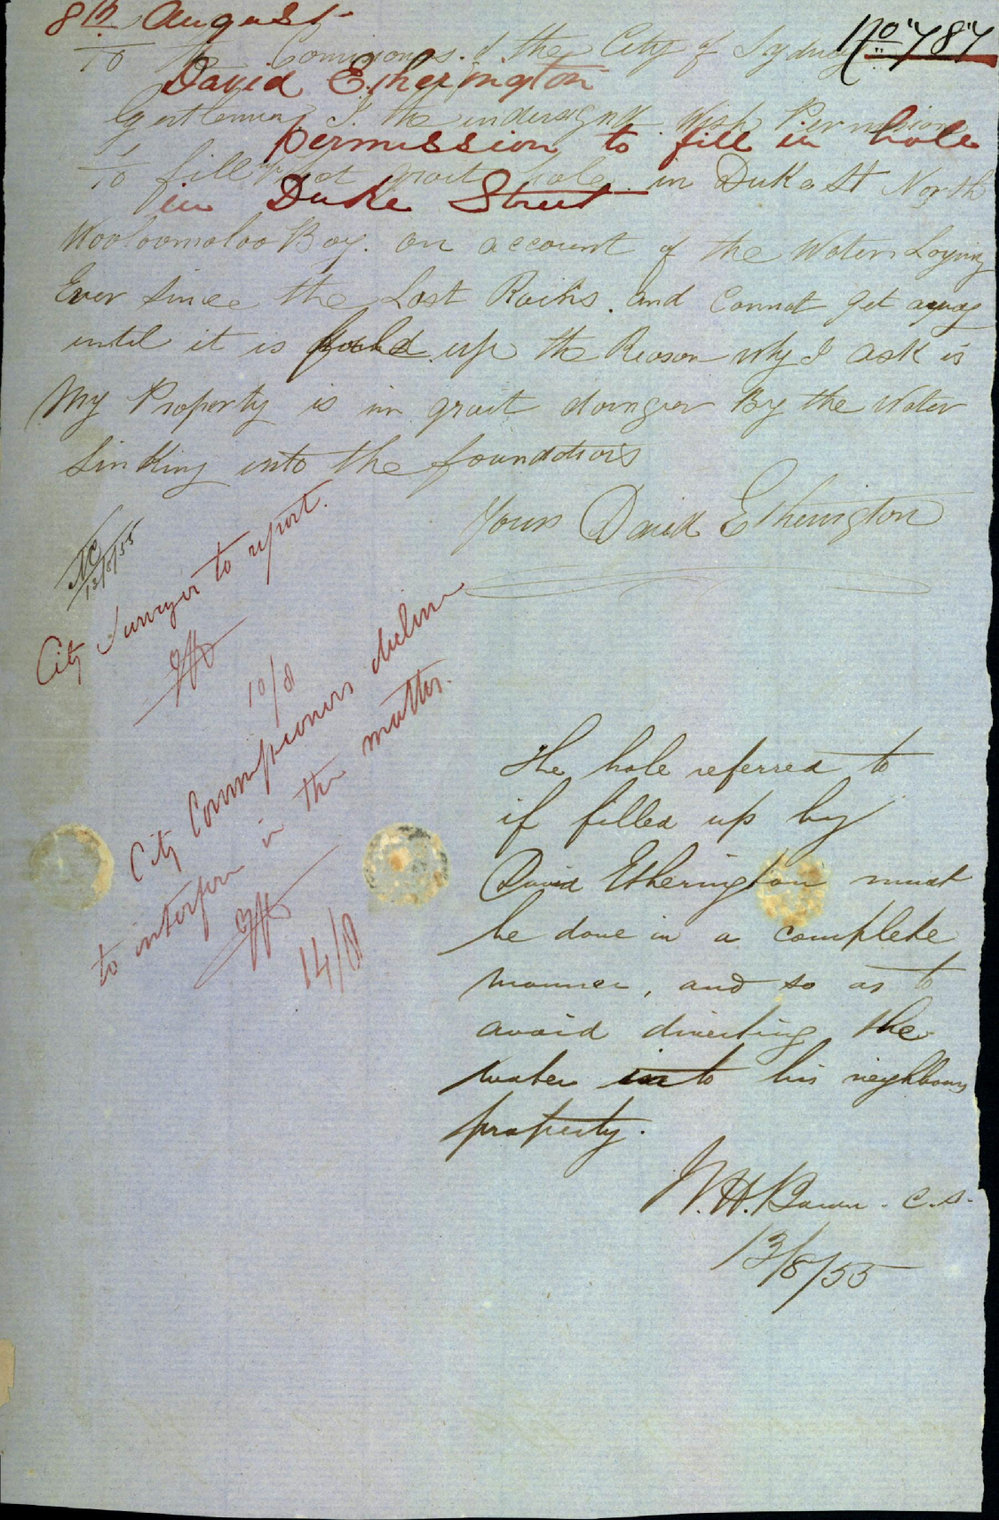 8th August
No 787
To the Comissoners of the City of Sydney
David Etherington
Gentlemen I the undersigned Wish Permission
permission to fill in hole
To fill that grait hole in Duke St North
in Duke Street
Wooloomoloo Bay. on account of the Water Laying
Ever Since the Last Rains. and Connot get away
until it is up the Reason why I ask is
My Property is in grait dainger By the Water
Sinking into the foundations
Yours David Etherington
13/8/55
City Surveyor to report.
10/8
City Commissioners decline
to interfere in the matter.
14/8
The hole referred to
if filled up by
David Etherington must
be done in a complete
manner, and so as to
avoid directing the
water into his neighbours
property.
W.H. C.S.
13/8/55